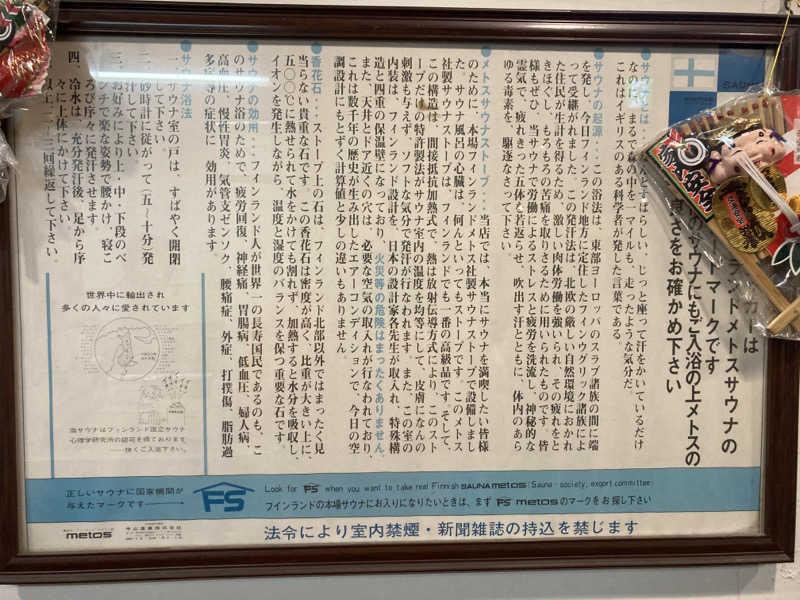 SAUNA
カーは
ランドメトスサウナの
ーマークです
のサウナにもご入浴の上メトスの
良さをお確かめ下さい
●サウナとは
んとすばらしい、じっと座って汗をかいているだけ
なのに、まるで森の中を一マイルも、走ったような気分だ
これはイギリスのある科学者が発した言葉である
●サウナの起源・・・この浴法は、東部ヨーロッパのスラブ諸族の間に端
を発し、今日フィンランド地方に定住したフィンウグリック諸族によ
って受継がれました。この発汗法は、北欧の厳しい自然環境におかれ
た住民が生計を得るため、激しい肉体労働を強いられ、その疲れをと
きほぐし、もろもろの苦痛を取りさるために用いられたものです。皆
様もぜひ、当サウナで労働によるストレスと疲労を洗流し、神秘的な
霊気で、疲れきった五体を若返らせ、吹出す汗とともに、体内のあら
ゆる毒素を、駆逐なさって下さい。
●メトスサウナストーブ・・・当店では、本当にサウナを満喫したい皆様
のために、本場フィンランドメトス社製サウナストーブで設備しまし
た。サウナ風呂の心臓は、何んといってもストーブです。このメトス
社製サウナストーブは、フィンランドでも一番の高級品です。そして、
この構造は、間接抵抗加熱式で、熱は放射伝導方式により、このスト
ーブだけの特許製法がサウナ室内の温度を均等にして、皮膚になんの
刺激も与えず、ソフトな気分で発汗が行なわれます。またこの室の
内装は、フィンランド設計を、日本の設計家各先生が取入れ、特殊構
造と四重の保温壁になっており、火災等の危険はまったくありません。
また、天井とドア近くの穴は、必要な空気の取入れが行なわれており、
これは数千年の歴史が生み出したエアーコンディションで、今日の空
調設計にもとずく計算値と少しの違いもありません
●香花石・・・ストーブ上の石は、フィンランド北部以外ではまったく見
当らない貴重な石です。この香花石は密度が高く、比重が大きい上に、
五〇〇℃に熱せられて水をかけても割れず、加熱すると水分を吸収し、
イオンを発生しながら、温度と湿度のバランスを保つ重要な石です
●サウナの効用・・・フィンランド人が世界一の長寿国民であるのも、こ
のサウナ浴のためで、疲労回復、神経痛、胃腸病、低血圧、婦人病、
高血圧、慢性胃炎、気管支ゼンソク、腰痛症、外症、打撲傷、脂肪過
多症等の症状に、効用があります。
●サウナ浴法
一、サウナ室の戸は、すばやく開閉
して下さい。
二、砂時計に従がって(五〜十分)発
汗して下さい。
三、お好みにより上・中・下段のベ
ンチで楽な姿勢で腰かけ、寝こ
ろび序々に発汗させます。
四、冷水は、充分発汗後、足から序
々に上体にかけて下さい。
以上二〜三回繰返して下さい。
世界中に輸出され
多くの人々に愛されています
当サウナはフィンランド国立サウナ
心理学研究所の認可を得ております
快くご入浴下さい。
正しいサウナに国家機関が
与えたマークです
FS
Look for FS when you want to take real Finnish SAUNA metos (Sauna-society, export committee)
フィンランドの本場サウナにお入りになりたいときは、まず FS metos のマークをお探し下さい
metos
中山産業株式会社
法令により室内禁煙・新聞雑誌の持込を禁じます